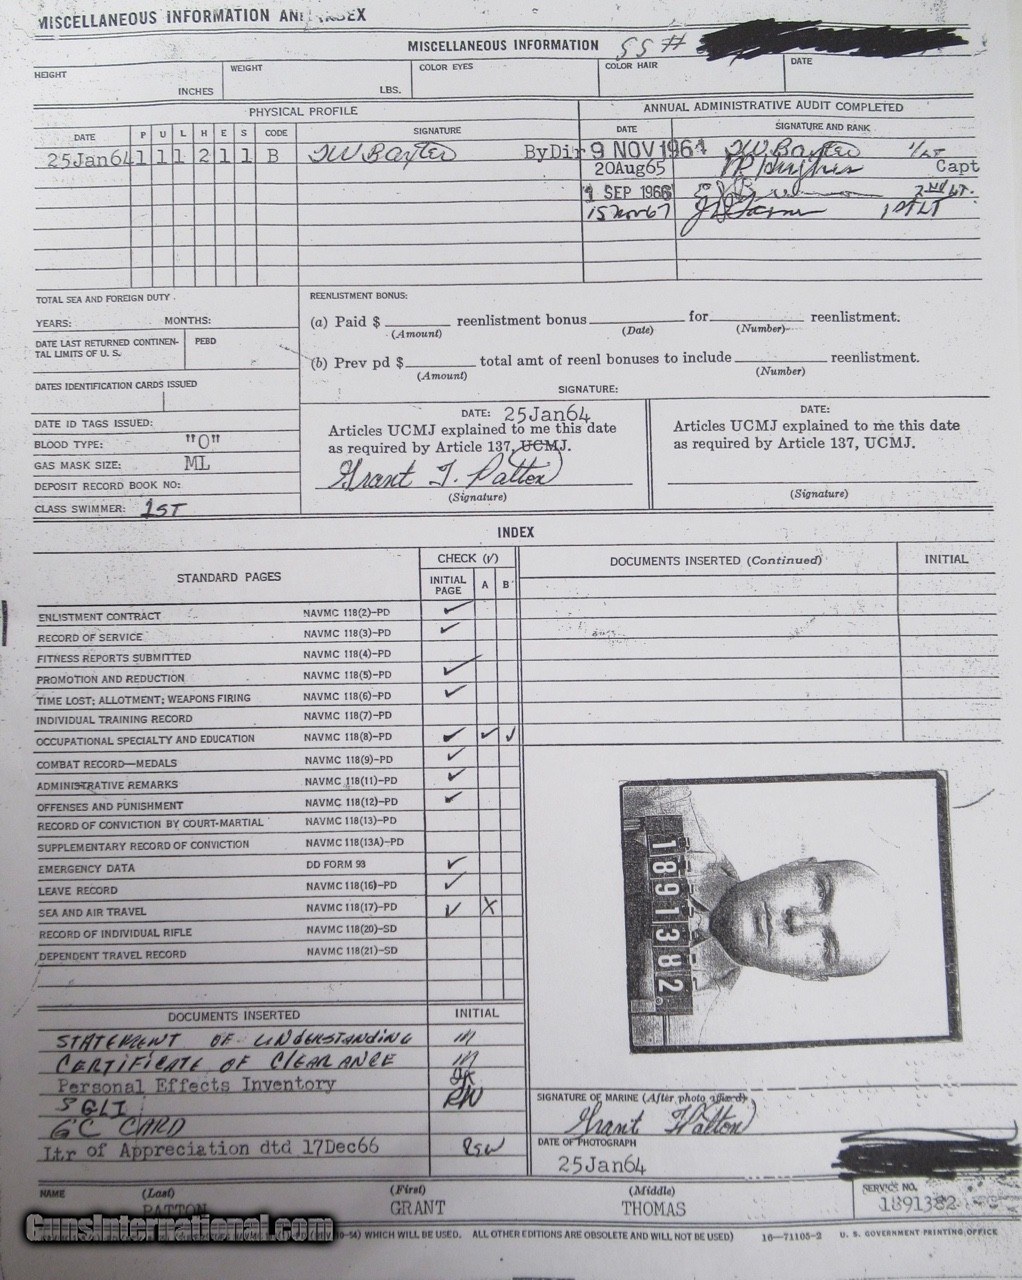 MISCELLANEOUS INFORMATION AND INDEX
MISCELLANEOUS INFORMATION SS#
HEIGHT INCHES WEIGHT LBS. COLOR EYES COLOR HAIR DATE
PHYSICAL PROFILE ANNUAL ADMINISTRATIVE AUDIT COMPLETED
DATE P U L H E S CODE SIGNATURE DATE SIGNATURE AND RANK
25Jan64 1 1 1 2 1 1 B TW Baxter ByDir 9 NOV 1964 TW Baxter 1/LT
20Aug65 Capt
1 SEP 1966 2nd LT.
15Nov67 1st LT
TOTAL SEA AND FOREIGN DUTY
YEARS: MONTHS:
DATE LAST RETURNED CONTINEN-
TAL LIMITS OF U. S.
PEBD
DATES IDENTIFICATION CARDS ISSUED
DATE ID TAGS ISSUED:
BLOOD TYPE: "O"
GAS MASK SIZE: ML
DEPOSIT RECORD BOOK NO:
CLASS SWIMMER: 1ST
REENLISTMENT BONUS:
(a) Paid $ reenlistment bonus for reenlistment.
(Amount) (Date) (Number)
(b) Prev pd $ total amt of reenl bonuses to include reenlistment.
(Amount) (Number)
SIGNATURE:
DATE: 25Jan64
Articles UCMJ explained to me this date
as required by Article 137, UCMJ.
Grant T. Patton
(Signature)
DATE:
Articles UCMJ explained to me this date
as required by Article 137, UCMJ.
(Signature)
INDEX
STANDARD PAGES CHECK (√)
INITIAL PAGE A B
ENLISTMENT CONTRACT NAVMC 118(2)-PD ✓
RECORD OF SERVICE NAVMC 118(3)-PD ✓
FITNESS REPORTS SUBMITTED NAVMC 118(4)-PD
PROMOTION AND REDUCTION NAVMC 118(5)-PD ✓
TIME LOST; ALLOTMENT; WEAPONS FIRING NAVMC 118(6)-PD ✓
INDIVIDUAL TRAINING RECORD NAVMC 118(7)-PD
OCCUPATIONAL SPECIALTY AND EDUCATION NAVMC 118(8)-PD ✓ ✓ ✓
COMBAT RECORD—MEDALS NAVMC 118(9)-PD ✓
ADMINISTRATIVE REMARKS NAVMC 118(11)-PD ✓
OFFENSES AND PUNISHMENT NAVMC 118(12)-PD ✓
RECORD OF CONVICTION BY COURT-MARTIAL NAVMC 118(13)-PD
SUPPLEMENTARY RECORD OF CONVICTION NAVMC 118(13A)-PD
EMERGENCY DATA DD FORM 93 ✓
LEAVE RECORD NAVMC 118(16)-PD ✓
SEA AND AIR TRAVEL NAVMC 118(17)-PD ✓ X
RECORD OF INDIVIDUAL RIFLE NAVMC 118(20)-SD
DEPENDENT TRAVEL RECORD NAVMC 118(21)-SD
DOCUMENTS INSERTED INITIAL
STATEMENT OF UNDERSTANDING
CERTIFICATE OF CLEARANCE
Personal Effects Inventory
SGLI RW
GC CARD
Ltr of Appreciation dtd 17Dec66 RSW
DOCUMENTS INSERTED (Continued) INITIAL
1891382
SIGNATURE OF MARINE (After photo affixed)
Grant T Patton
DATE OF PHOTOGRAPH
25Jan64
NAME (Last) (First) (Middle) SERVICE NO.
PATTON GRANT THOMAS 1891382
GunsInternational.com
WHICH WILL BE USED. ALL OTHER EDITIONS ARE OBSOLETE AND WILL NOT BE USED) 16—71105-2 U. S. GOVERNMENT PRINTING OFFICE